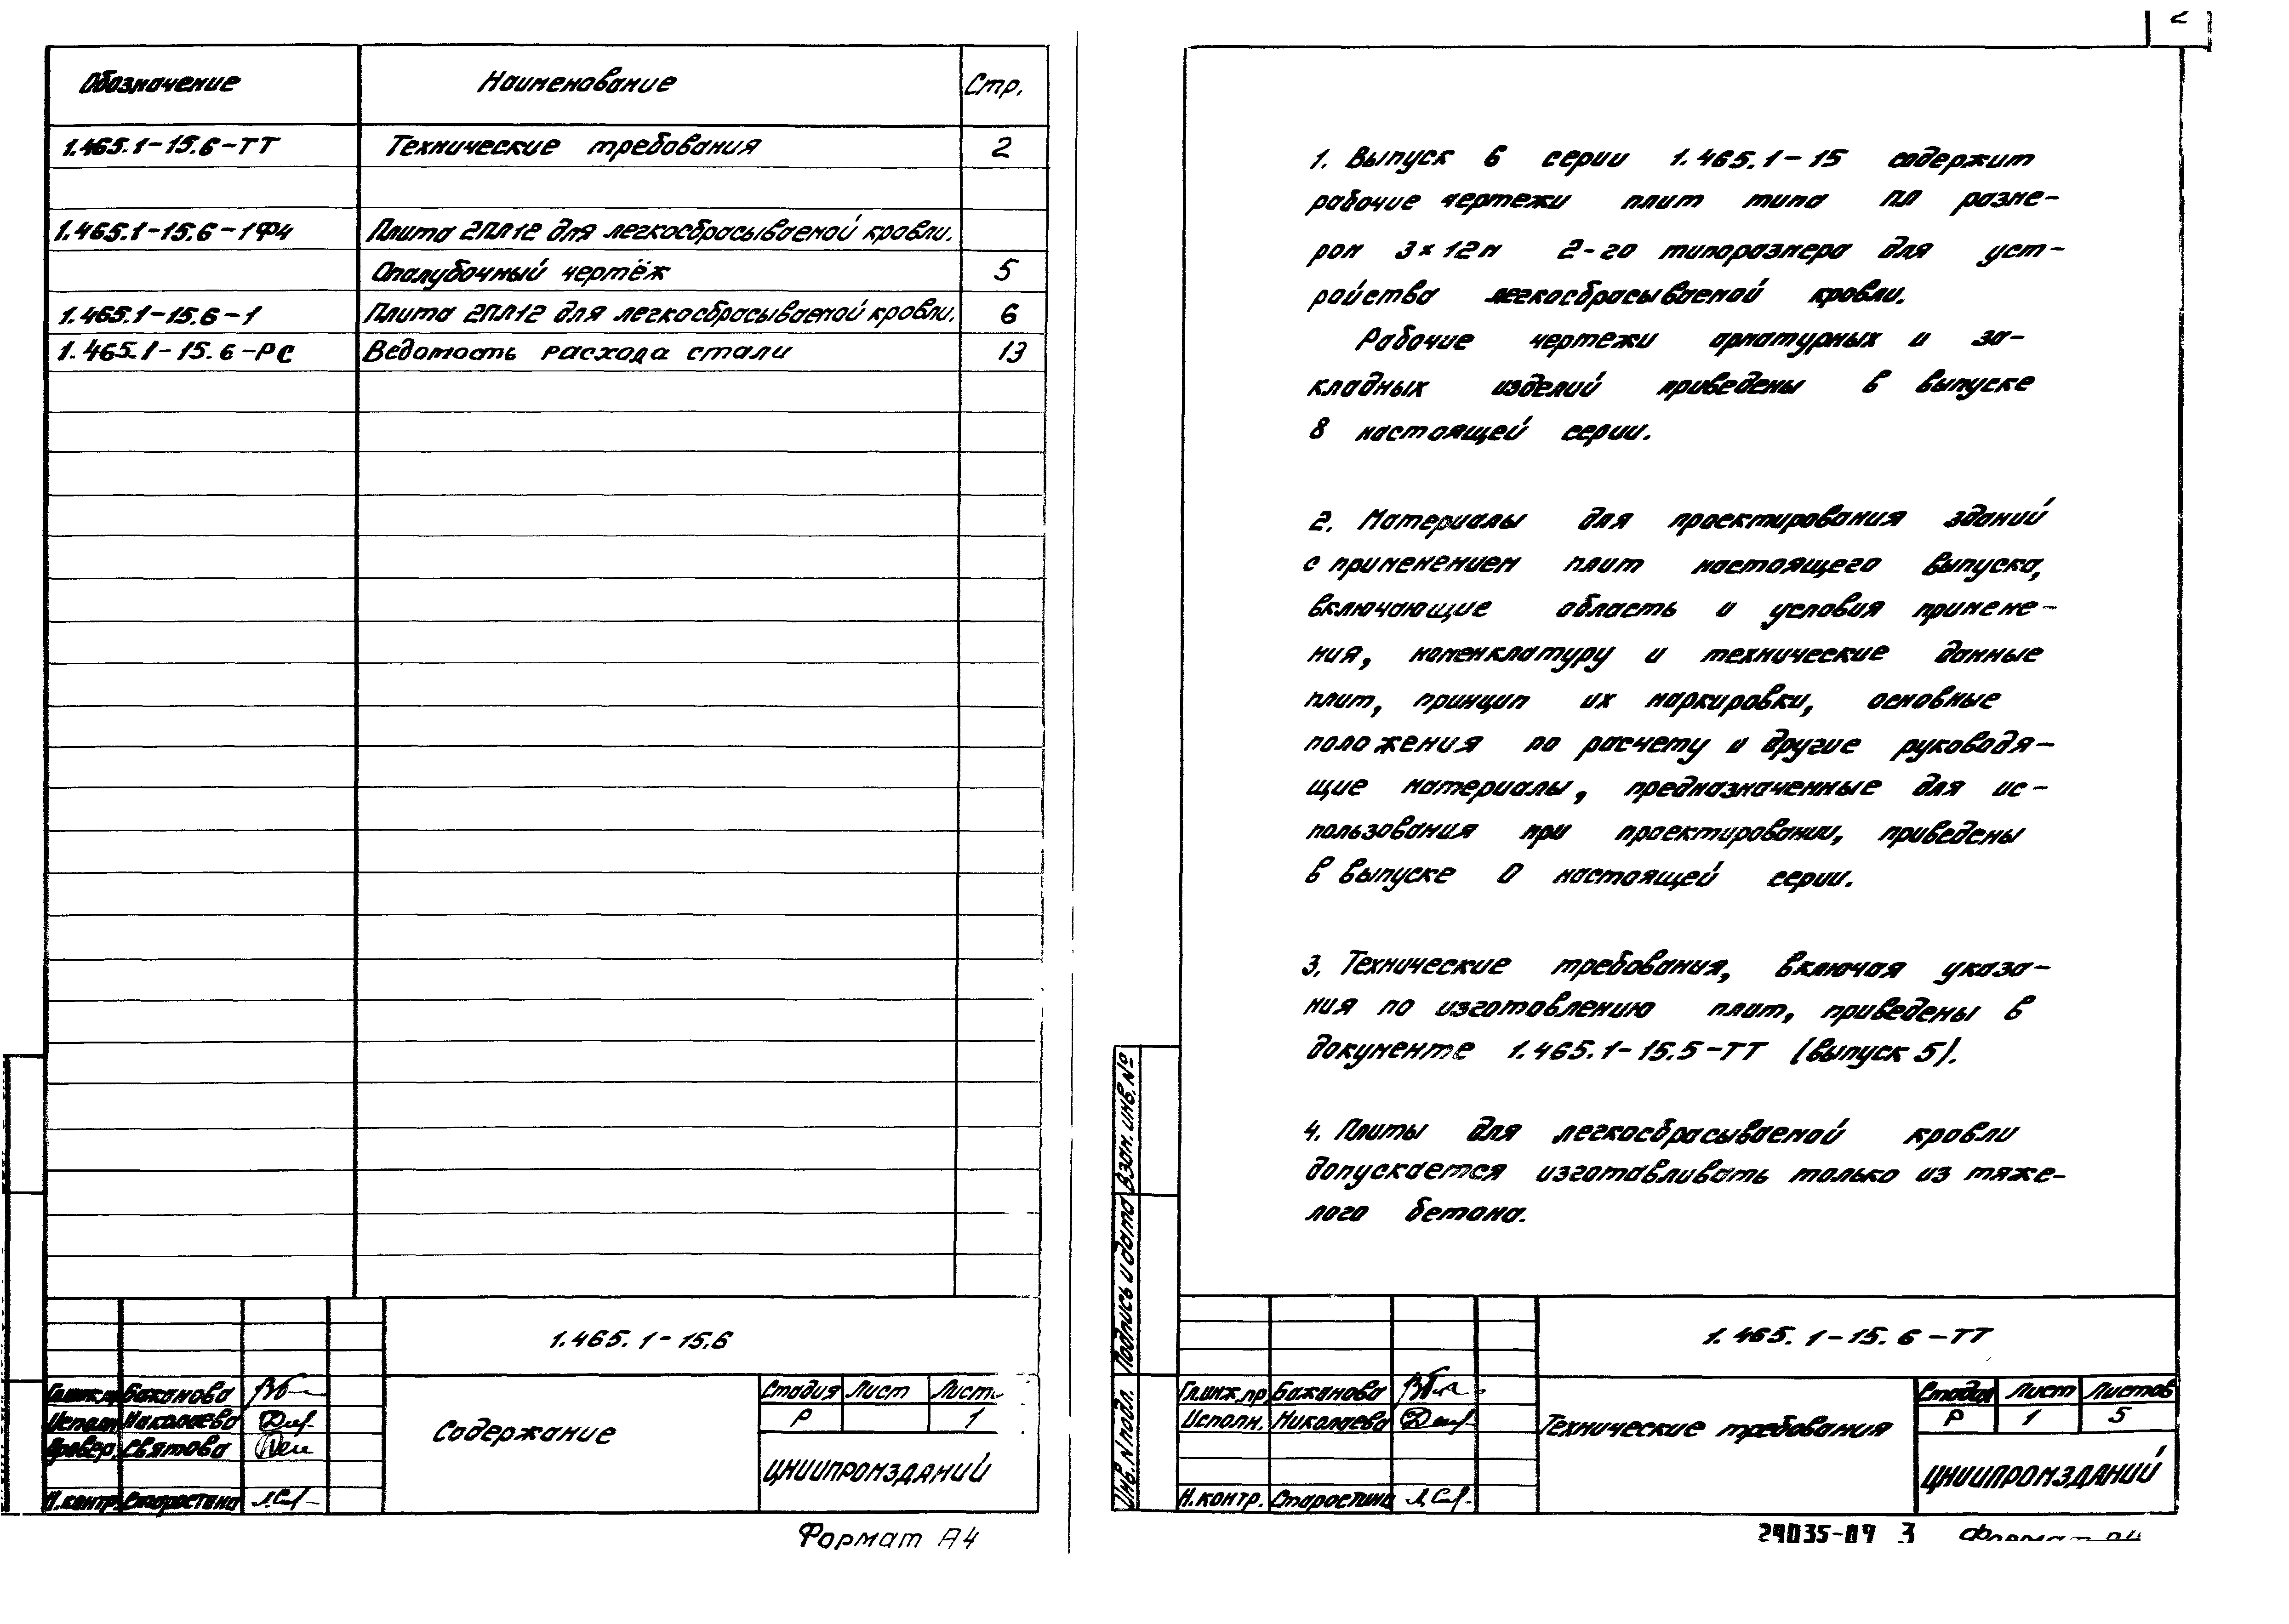 Обозначение Наименование Стр.
1.465.1-15.6-ТТ Технические требования 2
1.465.1-15.6-1Ф4 Плита 2ПЛ12 для легкосбрасываемой кровли.
Опалубочный чертёж 5
1.465.1-15.6-1 Плита 2ПЛ12 для легкосбрасываемой кровли. 6
1.465.1-15.6-РС Ведомость расхода стали 13
1.465.1-15.6
Гл.инж.пр. Бажанова
Исполн. Николаева
Провер. Святова
Н.контр. Старостина
Содержание
Стадия Лист
Р 1
ЦНИИПРОМЗДАНИЙ
Формат А4
2
1. Выпуск 6 серии 1.465.1-15 содержит
рабочие чертежи плит типа ПЛ разме-
ром 3х12м 2-го типоразмера для уст-
ройства легкосбрасываемой кровли.
Рабочие чертежи арматурных и за-
кладных изделий приведены в выпуске
8 настоящей серии.
2. Материалы для проектирования зданий
с применением плит настоящего выпуска,
включающие область и условия примене-
ния, номенклатуру и технические данные
плит, принцип их маркировки, основные
положения по расчету и другие руководя-
щие материалы, предназначенные для ис-
пользования при проектировании, приведены
в выпуске 0 настоящей серии.
3. Технические требования, включая указа-
ния по изготовлению плит, приведены в
документе 1.465.1-15.5-ТТ (выпуск 5).
4. Плиты для легкосбрасываемой кровли
допускается изготавливать только из тяже-
лого бетона.
Взам. инв. №
Подпись и дата
Инв. N подл.
1.465.1-15.6-ТТ
Гл.инж.пр. Бажанова
Исполн. Николаева
Н.контр. Старостина
Технические требования
Стадия Лист Листов
Р 1 5
ЦНИИПРОМЗДАНИЙ
24035-09 3 Формат А4